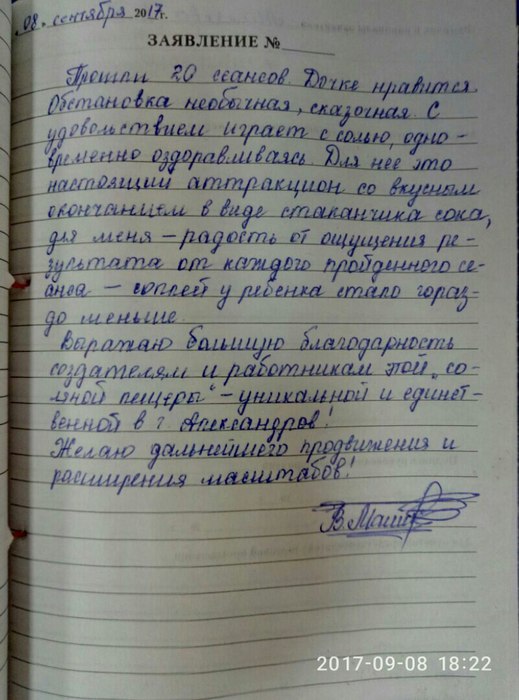 08. сентября 2017г.
ЗАЯВЛЕНИЕ №
Прошли 20 сеансов. Дочке нравится.
Обстановка необычная, сказочная. С
удовольствием играет с солью, одно-
временно оздоравливаясь. Для нее это
настоящий аттракцион со вкусным
окончанием в виде стаканчика сока,
для меня – радость от ощущения ре-
зультата от каждого пройденного се-
анса – соплей у ребенка стало гораз-
до меньше.
Выражаю большую благодарность
создателям и работникам этой „со-
ляной пещеры" – уникальной и единст-
венной в г. Александров!
Желаю дальнейшего продвижения и
расширения масштабов!
2017-09-08 18:22